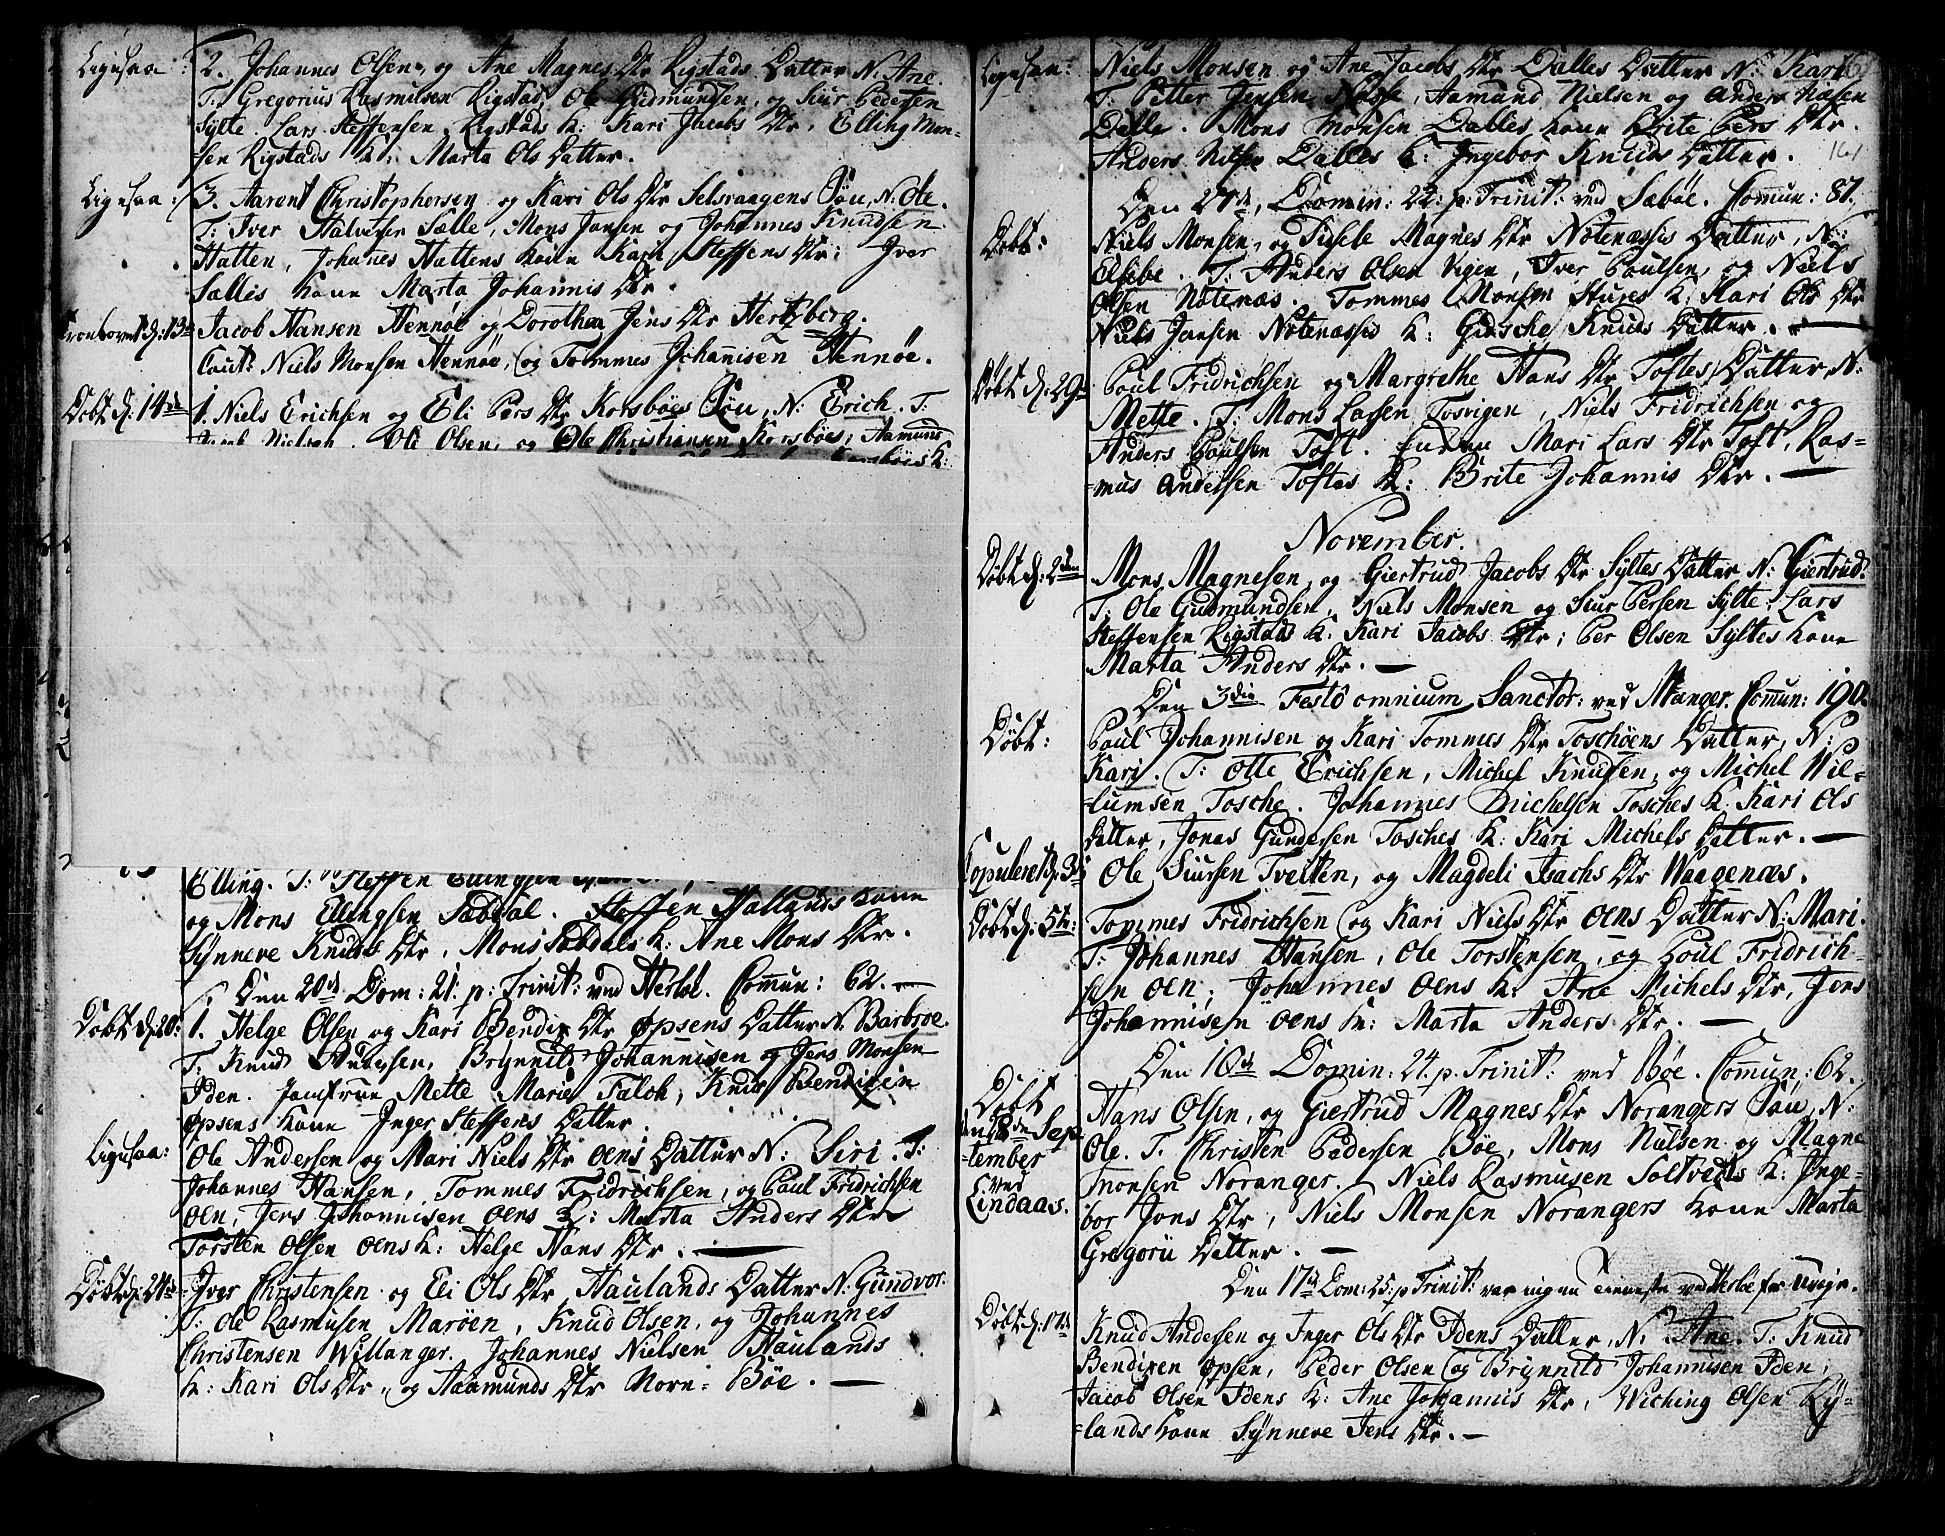 Ligesaa:
2. Johannes Olsen, og Ane Magnes Dtr Rigstads Datter N: Ane.
T: Gregorius Rasmusen Rigstad, Ole Gudmundsen, og Siur Pedersen
Sylte. Lars Steffensen Rigstads K: Kari Jacobs Dtr, Elling Mon-
sen Rigstads K: Marta Ols Datter.
Ligesaa:
3. Aaront Christophersen og Kari Ols Dtr Selsvaagens Søn, N: Ole.
T: Iver Halversen Sælle, Mons Jansen og Johannes Knudsen
Hatten, Johanes Hattens Kone Kari Steffens Dtr; Iver
Sælles Kone Marta Johannis Dtr.
Trolovet d: 13de
Jacob Hansen Hennøe og Dorothea Jens Dtr Hertzberg.
Caut: Niels Monsen Hennøe, og Tommes Johanisen Hennøe.
Døbt d: 14de
1. Niels Erichsen og Eli Pers Dtr Korsbøes Søn, N: Erich. T:
Nielsen, Ole Olsen, og Ole Christiansen Korsbøes; Aamund
Elling. T: Steffen Ellingsen
og Mons Ellingsen Sæbdal. Steffen Hallands Kone
Synneve Knuds Dtr, Mons Sæbdals K: Ane Mons Dtr.
Den 20de Dom: 21. p: Trinit: ved Herløe. Comun: 62.
Døbt d: 20:
1. Helge Olsen og Kari Bendix Dtr Øpsens Datter N: Barbroe
T: Knud Andersen, Brynnild Johannisen og Jens Monsen
Iden. Jomfrue Mette Marie Falch, Knud Bendixen
Øpsens Kone Inger Steffens Datter.
Ligesaa:
Ole Andersen og Mari Niels Dtr Oens Datter N: Siri. T:
Johannes Hansen, Tommes Fridrichsen, og Poul Fridrichsen
Oen, Jens Johannisen Oens K: Marta Anders Dtr
Torsten Olsen Oens K: Helge Hans Dtr.
Døbt d: 24de
Iver Christensen og Eli Ols Dtr Haulands Datter N: Gundvor.
T: Ole Rasmusen Marøen, Knud Olsen, og Johannes
Christensen Willanger. Johannes Nielsen Haulands
K: Kari Ols Dtr, og Aamunds Dtr Norn-Bøe.
Ligesaa:
Niels Monsen og Ane Jacobs Dtr Dalles Datter N: Kari
T: Petter Jensen, Aamund Nielsen og Anders
Dalle. Mons Monsen Dalles Kone Brite Pers Dtr.
Anders Nilsen Dalles K: Ingebor Knuds Datter.
161
Den 27de, Domin: 22: p: Trinit: ved Sæbøe. Comun: 87.
Døbt:
Niels Monsen, og Sidsele Magnes Dtr Notenæsses Datter, N:
Elsebe. T: Anders Olsen Vigen, Iver Poulsen, og Niels
Olsen Notenæs. Tommes Monsen Stures K: Kari Ols Dtr
Niels Jansen Notenæsses K: Gidsche Knuds Datter.
Døbt d: 29de
Poul Fridrichsen og Margrethe Hans Dtr Toftes Datter, N:
Mette. T: Mons Larsen Tosvigen, Niels Fridrichsen og
Anders Poulsen Toft. Enken Mari Lars Dtr Toft, Ras-
mus Andersen Toftes K: Brite Johannis Dtr.
November.
Døbt d: 2den
Mons Magnesen, og Giertrud Jacobs Dtr Syltes Datter N: Giertrud.
T: Ole Gudmundsen, Niels Monsen og Siur Persen Sylte. Lars
Steffensen Rigstads K: Kari Jacobs Dtr; Per Olsen Syltes Kone
Marta Anders Dtr.
Den 3die Festo omnium Sanctor: ved Manger. Comun: 190.
Døbt:
Poul Johannisen og Kari Tommes Dtr Toschøens Datter, N:
Kari. T: Otte Erichsen, Michel Knudsen, og Michel Wil-
lumsen Tosche. Johannes Michelsen Tosches K: Kari Ols
Datter, Jonas Gundersen Tosches K: Kari Michels Datter.
Copuleret d: 3de
Ole Siursen Tveiten, og Magdeli Isachs Dtr Waagenæs.
Døbt d: 5te:
Tommes Fridrichsen og Kari Niels Dtr Oens Datter N: Mari.
T: Johannes Hansen, Ole Torstensen, og Poul Fridrich-
sen Oen; Johannes Oens K: Ane Michels Dtr, Jens
Johannisen Oens K: Marta Anders Dtr.
Den 10de Domin: 24. p. Trinit: ved Bøe. Comun: 62.
Døbt
Sep-
tember
ved
Lindaas.
Hans Olsen, og Giertrud Magnes Dtr Norangers Søn, N:
Ole. T: Christen Pedersen Bøe, Mons Nilsen og Magne
Monsen Noranger. Niels Rasmusen Soltvedts K: Inge-
bor Jons Dtr, Niels Monsen Norangers Kone Marta
Gregorii Datter.
Den 17de Dom: 25. p Trinit: var ingen Tieneste ved Herløe for Uvejr.
Døbt d: 17de
Knud Andersen og Inger Ols Dtr Idens Datter, N: Ane. T: Knud
Bendixen Øpsen, Peder Olsen og Brynnild Johannisen Iden;
Jacob Olsen Idens K: Ane Johannis Dtr, Wiching Olsen Ry-
lands Kone Synneve Jens Dtr.